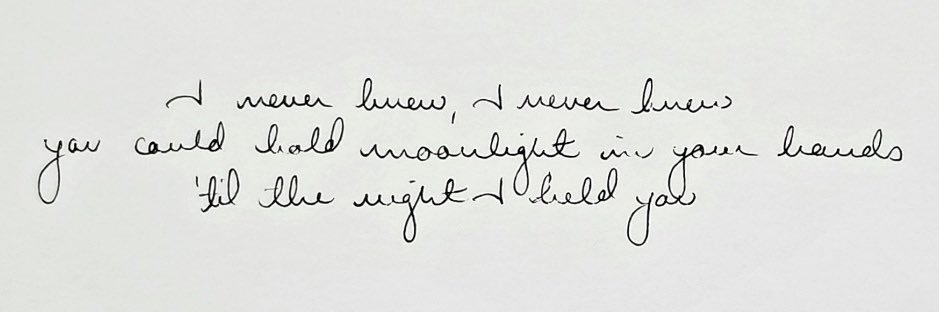 I never knew, I never knew
you could hold moonlight in your hands
'til the night I held you